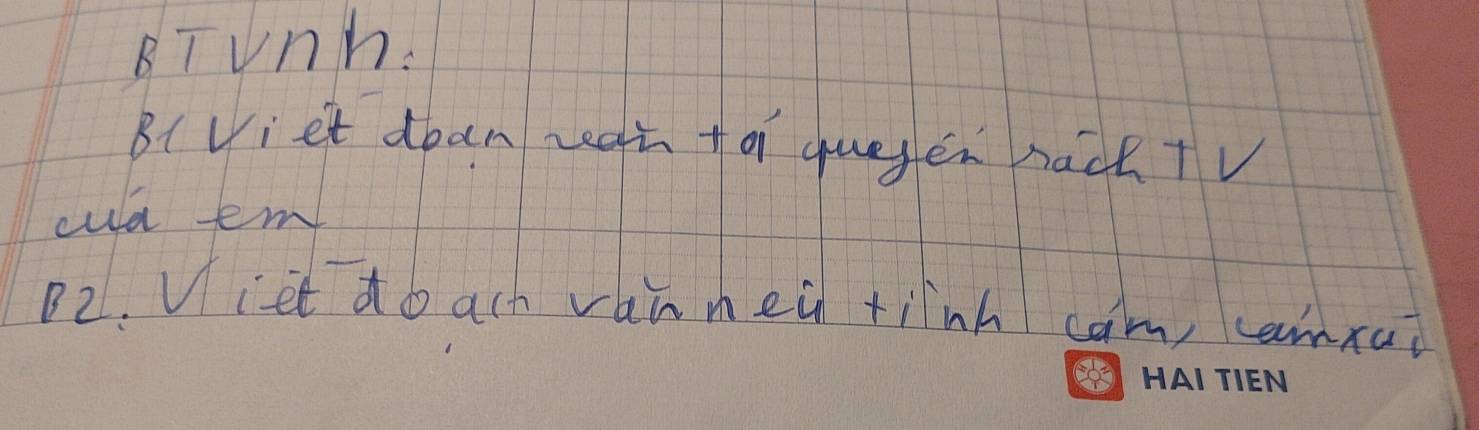 BTVnh:
B1 Viết đoạn văn tả quyển sách TV
của em
B2. Viết đoạn văn nêu tình cảm, cảm xúc
HAI TIEN